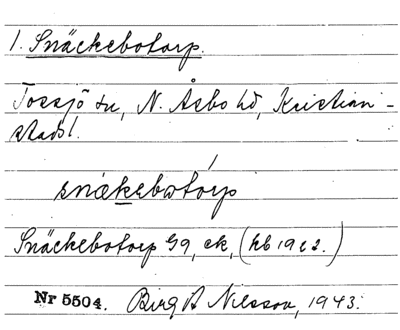 1. Snäckebotorp.
Tossjö sn, N. Åsbo hd, Kristian-
stads l.
snækebωtórp
Snäckebotorp Gg, ek, (hb 1912.)
Nr 5504. Birg A Nilsson, 1943.